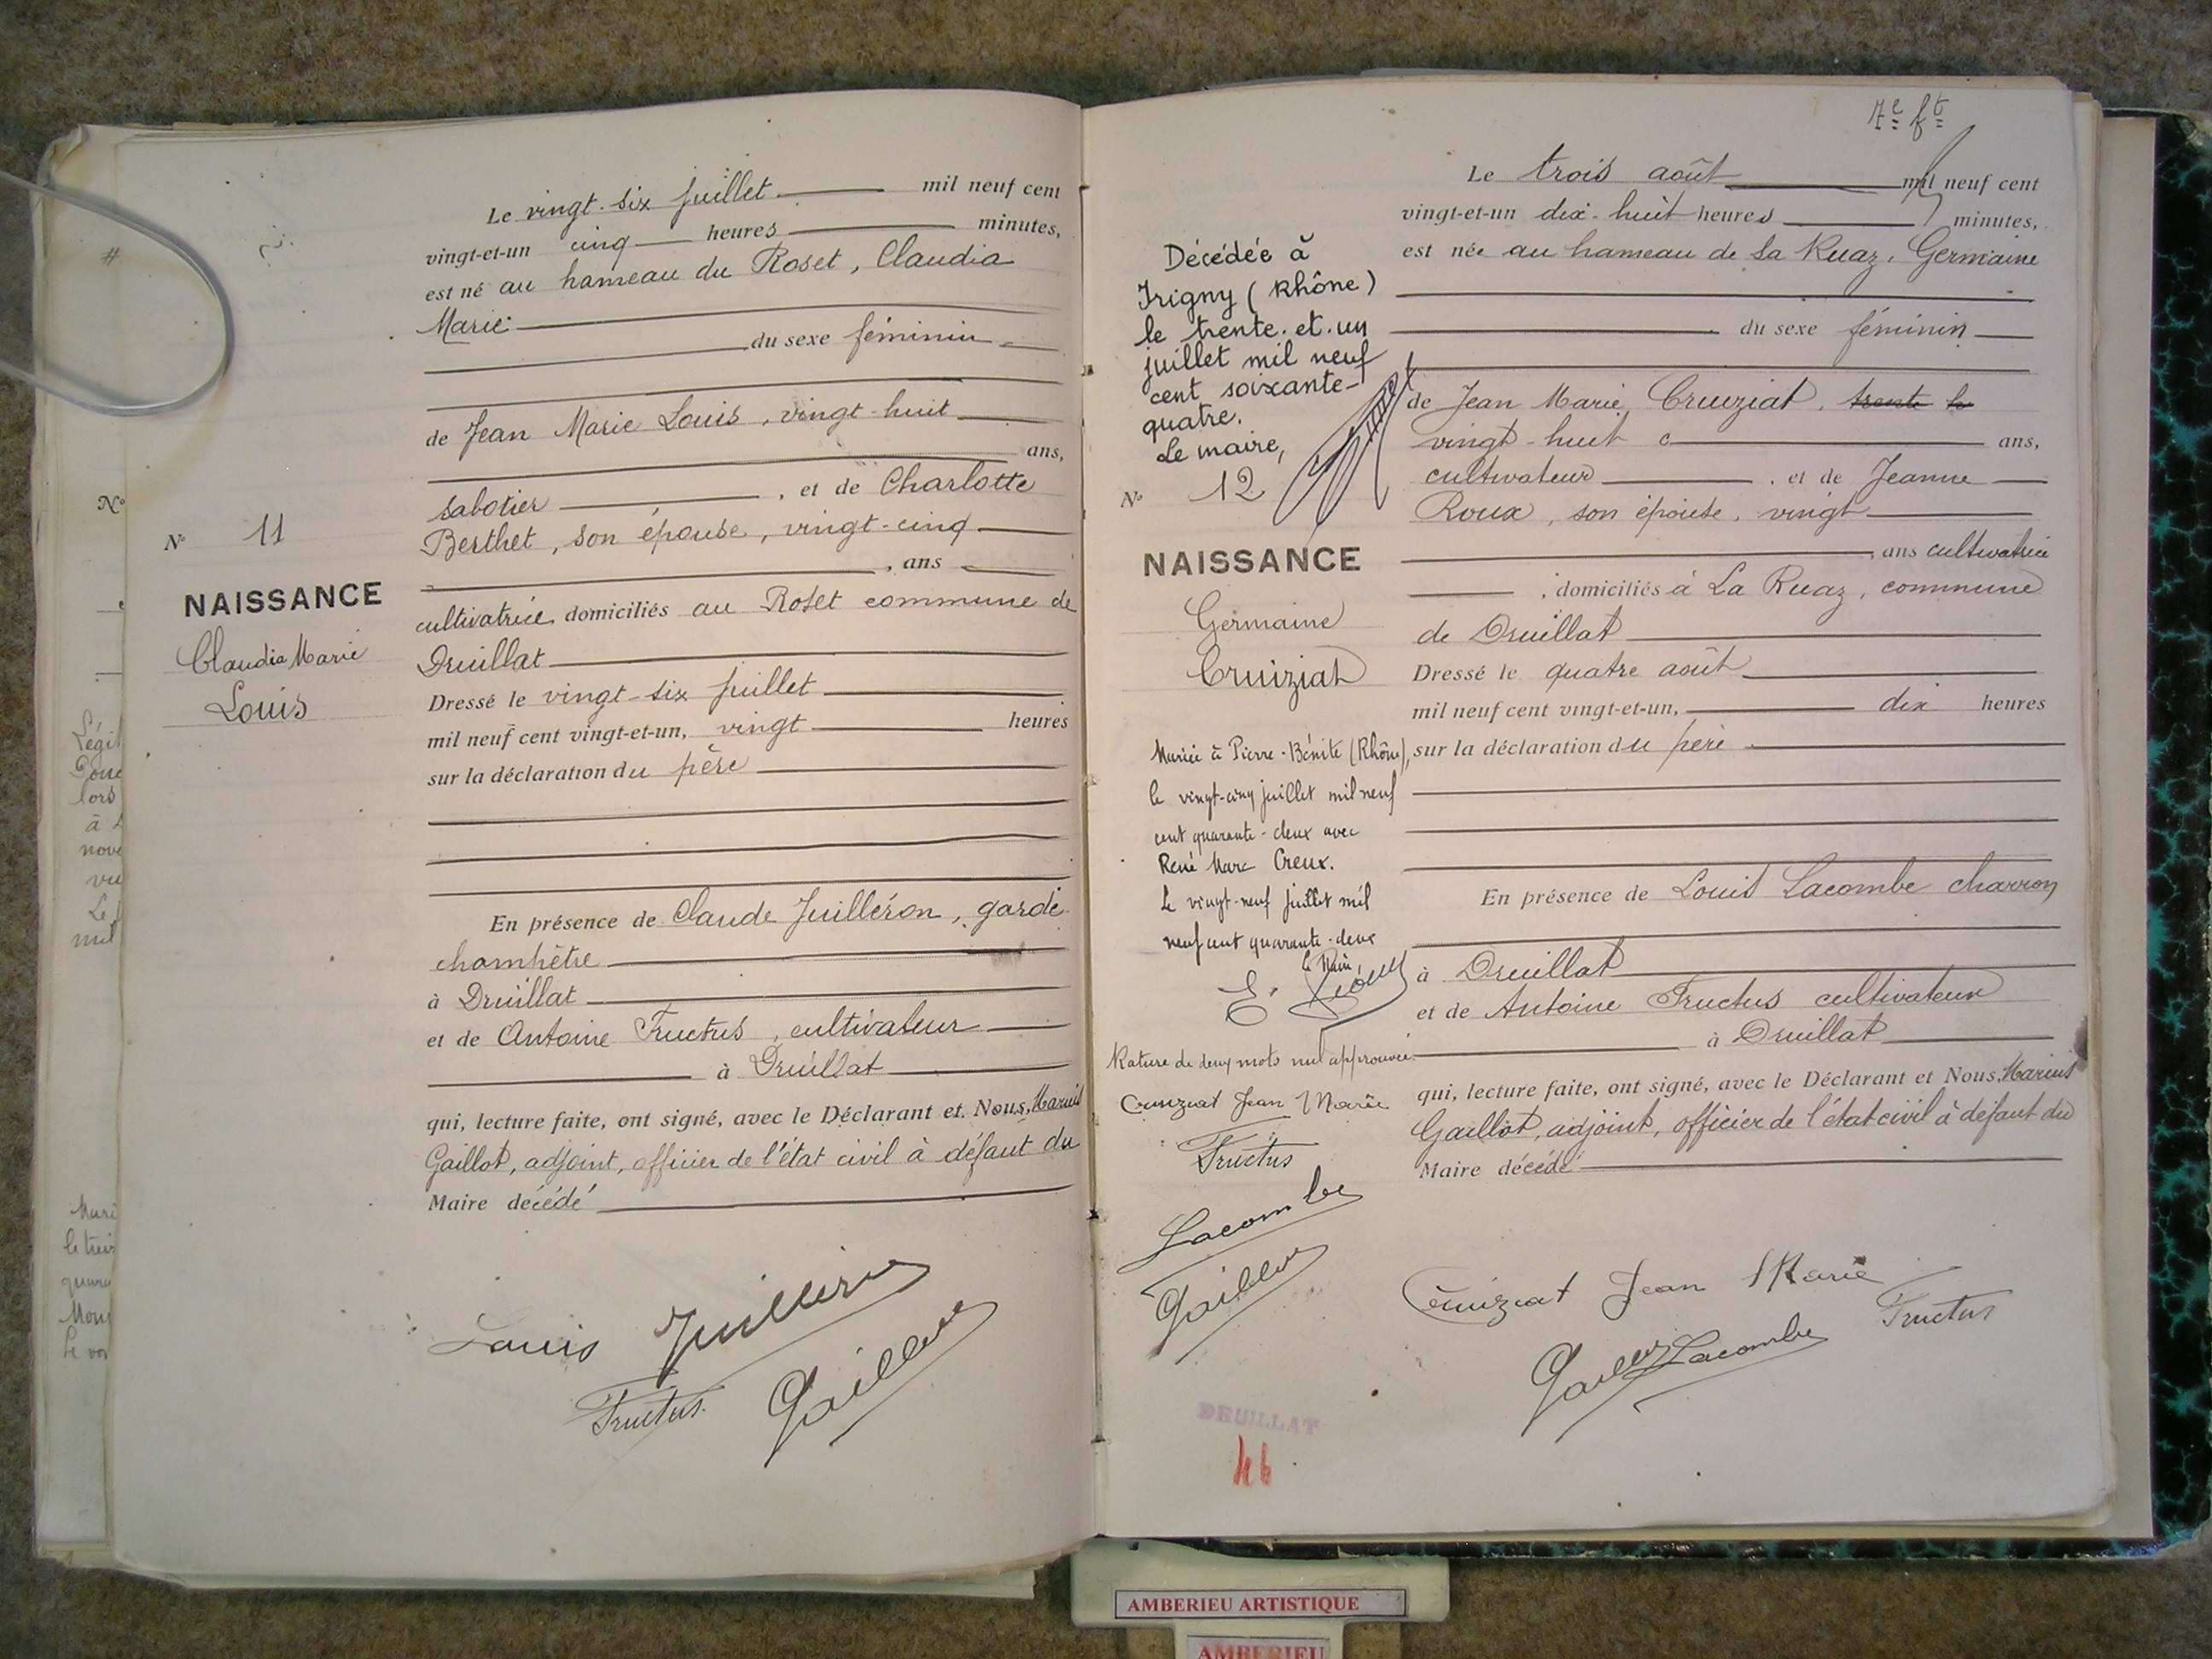 Le vingt-six juillet mil neuf cent
vingt-et-un cinq heures minutes,
est né au hameau du Roset, Claudia
Marie
du sexe féminin
de Jean Marie Louis, vingt-huit
ans,
sabotier, et de Charlotte
Berthet, son épouse, vingt-cinq
, ans
cultivatrice, domiciliés au Roset commune de
Druillat
Dressé le vingt-six juillet
mil neuf cent vingt-et-un, vingt heures
sur la déclaration du père
En présence de Claude Juilléron, garde
champêtre
à Druillat
et de Antoine Fructus, cultivateur
à Druillat
qui, lecture faite, ont signé, avec le Déclarant et Nous, Marius
Gaillot, adjoint, officier de l'état civil à défaut du
Maire décédé
Louis Juilleron
Fructus Gaillot
N° 11
NAISSANCE
Claudia Marie
Louis
N°
Légi
lors
à
nove
vu
Le
mil
Mari
le trei
quara
7e ft
Le trois août mil neuf cent
vingt-et-un dix-huit heures minutes,
est née au hameau de la Ruaz, Germaine
du sexe féminin
de Jean Marie Cruiziat, trente
vingt-huit ans,
cultivateur, et de Jeanne
Roux, son épouse, vingt
, ans cultivatrice
, domiciliés à La Ruaz, commune
de Druillat
Dressé le quatre août
mil neuf cent vingt-et-un, dix heures
sur la déclaration du père
En présence de Louis Lacombe charron
à Druillat
et de Antoine Fructus cultivateur
à Druillat
qui, lecture faite, ont signé, avec le Déclarant et Nous, Marius
Gaillot, adjoint, officier de l'état civil à défaut du
Maire décédé
Cruiziat Jean Marie
Fructus
Gaillot Lacombe
Décédée à
Irigny (Rhône)
le trente.et.un
juillet mil neuf
cent soixante-
quatre.
Le maire,
N° 12
NAISSANCE
Germaine
Cruiziat
Mariée à Pierre-Bénite (Rhône),
le vingt-cinq juillet mil neuf
cent quarante-deux avec
René Marc Creux.
Le vingt-neuf juillet mil
neuf cent quarante-deux
Le Maire,
Rature de deux mots nul approuvée
Cruiziat Jean Marie
Fructus
Lacombe
Gaillot
DRUILLAT
46
AMBERIEU ARTISTIQUE
AMBERIEU